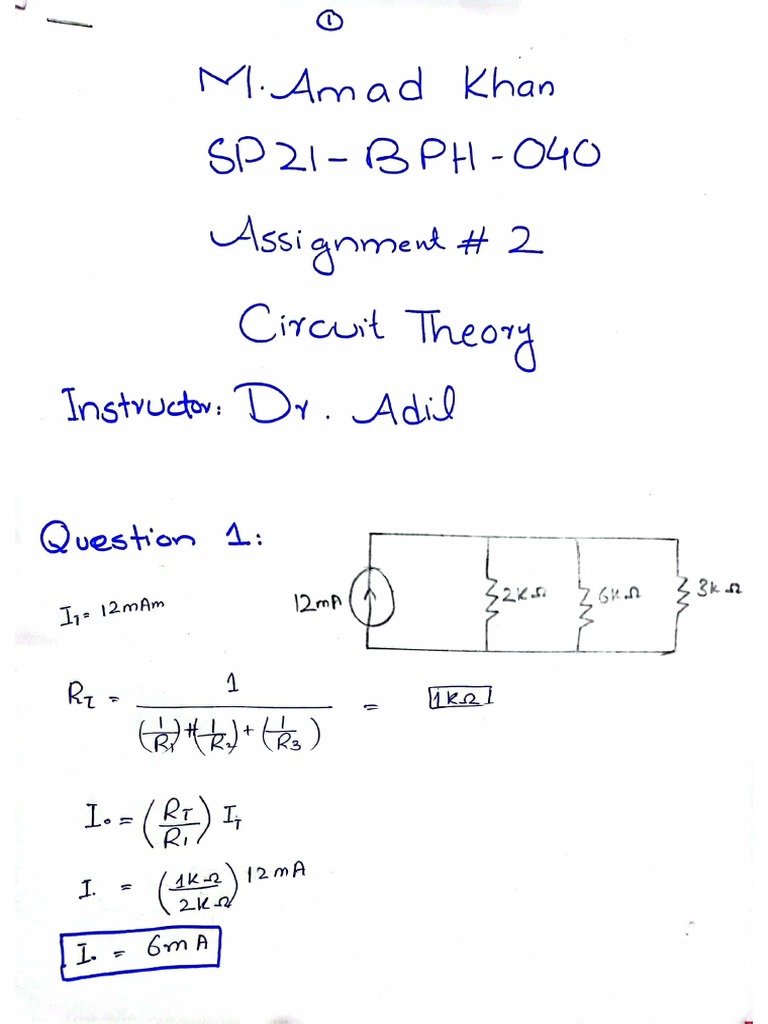 ①
M. Amad Khan
SP21-BPH-040
Assignment # 2
Circuit Theory
Instructor: Dr. Adil
Question 1:
I₁ = 12mAm
12mA
2KΩ
6KΩ
3kΩ
R_T = 1 / ((1/R₁) + (1/R₂) + (1/R₃)) = 1KΩ
I₀ = (R_T/R₁) I_T
I. = (1KΩ/2KΩ) 12mA
I. = 6mA